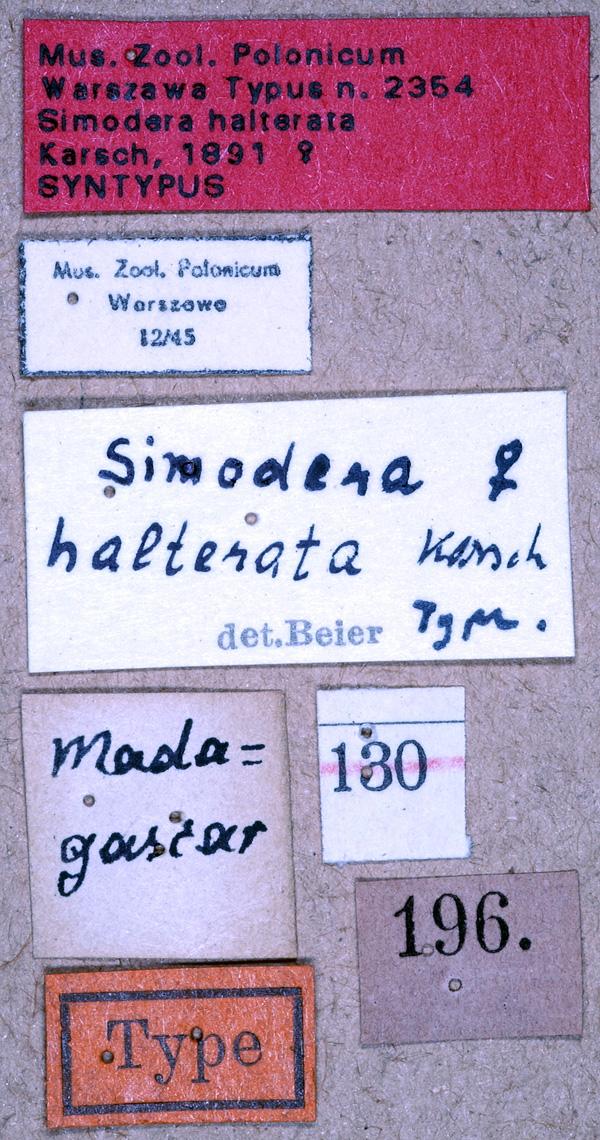 Mus. Zool. Polonicum
Warszawa Typus n. 2354
Simodera halterata
Karsch, 1891 ♀
SYNTYPUS
Mus. Zool. Polonicum
Warszawa
12/45
Simodera ♀
halterata Karsch
det. Beier Type.
Mada=
gascar
130
196.
Type